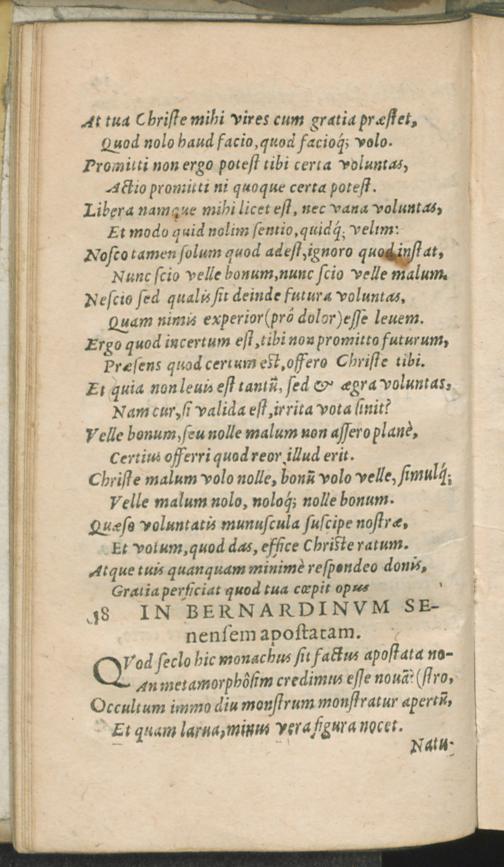 At tua Christe mihi vires cum gratia præstet,
Quod nolo haud facio, quod facioq́; volo.
Promitti non ergo potest tibi certa voluntas,
Actio promitti ni quoque certa potest.
Libera namque mihi licet est, nec vana voluntas,
Et modo quid nolim sentio, quidq́; velim:
Nosco tamen solum quod adest, ignoro quod instat,
Nunc scio velle bonum, nunc scio velle malum.
Nescio sed qualis sit deinde futura voluntas,
Quam nimis experior (prô dolor) esse leuem.
Ergo quod incertum est, tibi non promitto futurum,
Præsens quod certum est, offero Christe tibi.
Et quia non leuis est tantũ, sed & ægra voluntas,
Nam cur, si valida est, irrita vota sinit?
Velle bonum, seu nolle malum non assero planè,
Certius offerri quod reor illud erit.
Christe malum volo nolle, bonũ volo velle, simulq́;
Velle malum nolo, noloq́; nolle bonum.
Quæso voluntatis munuscula suscipe nostræ,
Et votum, quod das, effice Christe ratum.
Atque tuis quanquam minimè respondeo donis,
Gratia perficiat quod tua cœpit opus
18 IN BERNARDINVM SE-
nensem apostatam.
QVod seclo hic monachus sit factus apostata no-
An metamorphôsim credimus esse nouã? (stro,
Occultum immo diu monstrum monstratur apertũ,
Et quam larua, minus vera figura nocet.
Natu-